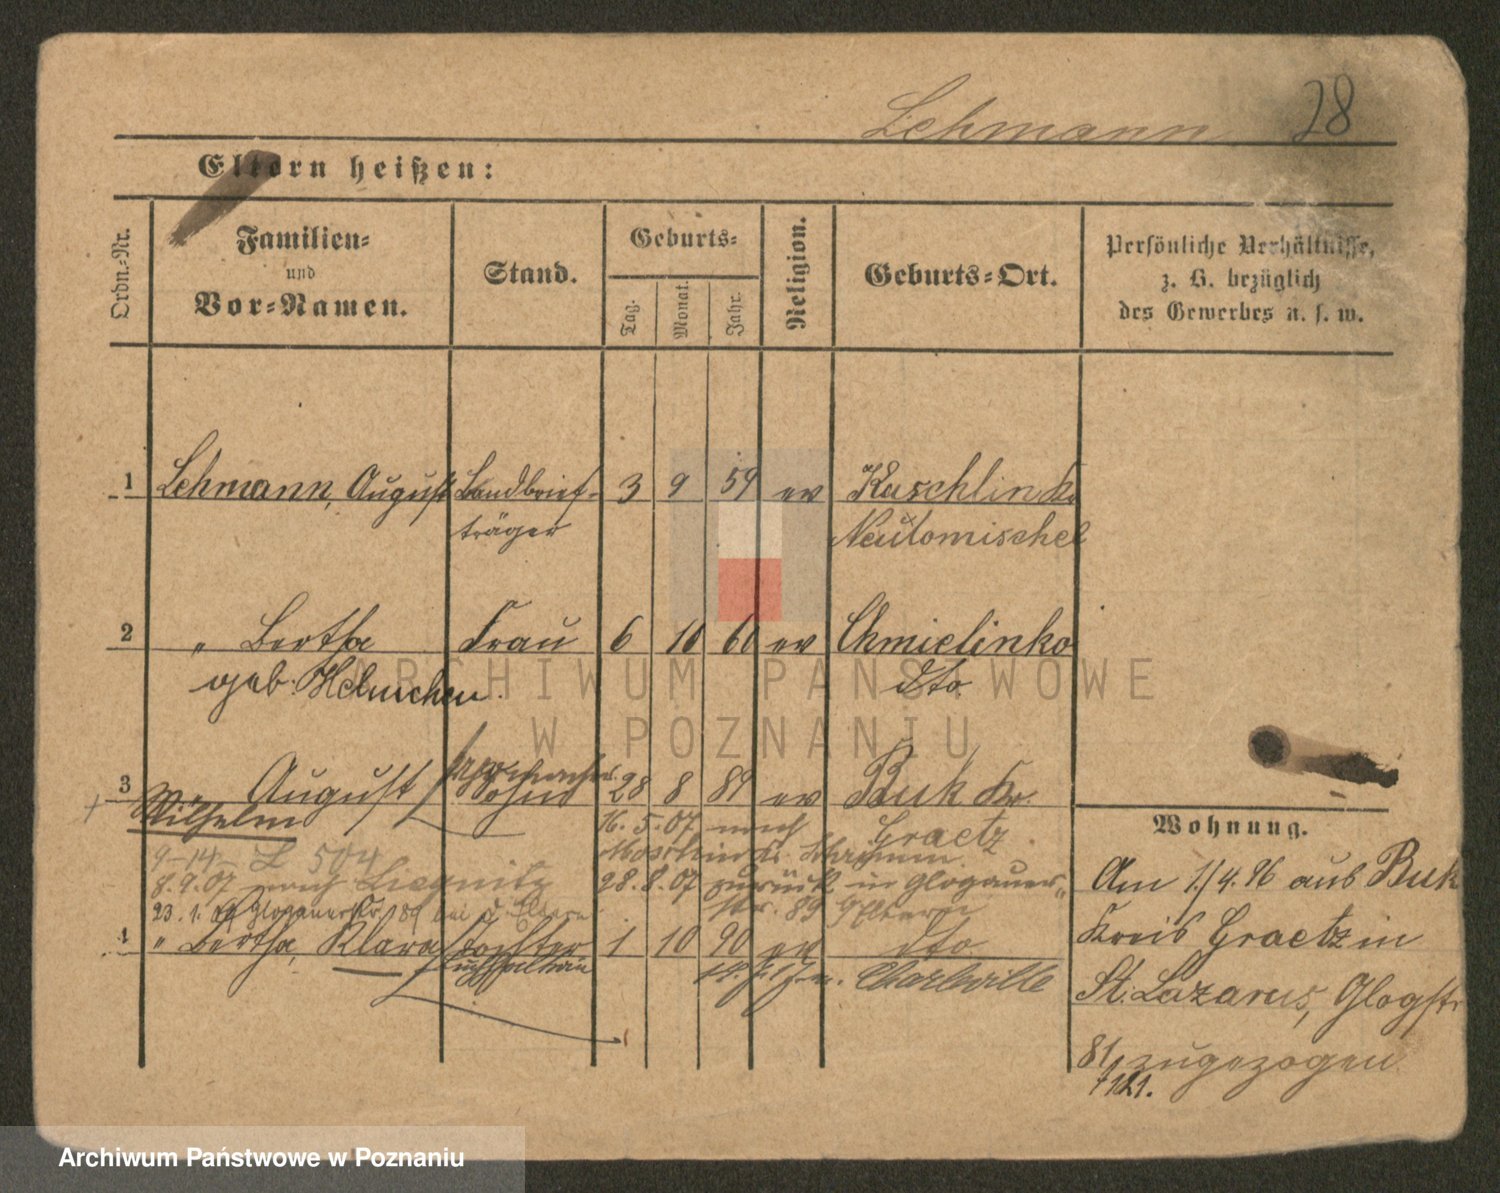 Lehmann 28
Eltern heißen:
Ordn.-Nr.
Familien-
und
Vor-Namen.
Stand.
Geburts-
Tag.
Monat.
Jahr.
Religion.
Geburts-Ort.
Persönliche Verhältnisse,
z. B. bezüglich
des Gewerbes u. s. w.
1 Lehmann, August Landbrief- 3 9 59 ev Kuschlin Kr
träger Neutomischel
2 " Bertha Frau 6 10 60 ev Chmielinko
geb. dto
3 August Sohn 28 8 89 ev Buk Kr.
Wilhelm 16. 5. 07 nach Graetz
9-14- L 504
8. 9. 07 nach Liegnitz 28. 8. 07 zurück in Glogauer-
23. 1. Glogauerstr 89 bei d. Eltern Str. 89 Eltern
4 " Bertha, Klara Tochter 1 10 90 ev dto
Buchhalterin Charlotte
Wohnung.
Am 1./4. 96 aus Buk
Kreis Graetz in
St. Lazarus, Glogstr
81 zugezogen
121.
ARCHIWUM PAŃSTWOWE
W POZNANIU
Archiwum Państwowe w Poznaniu